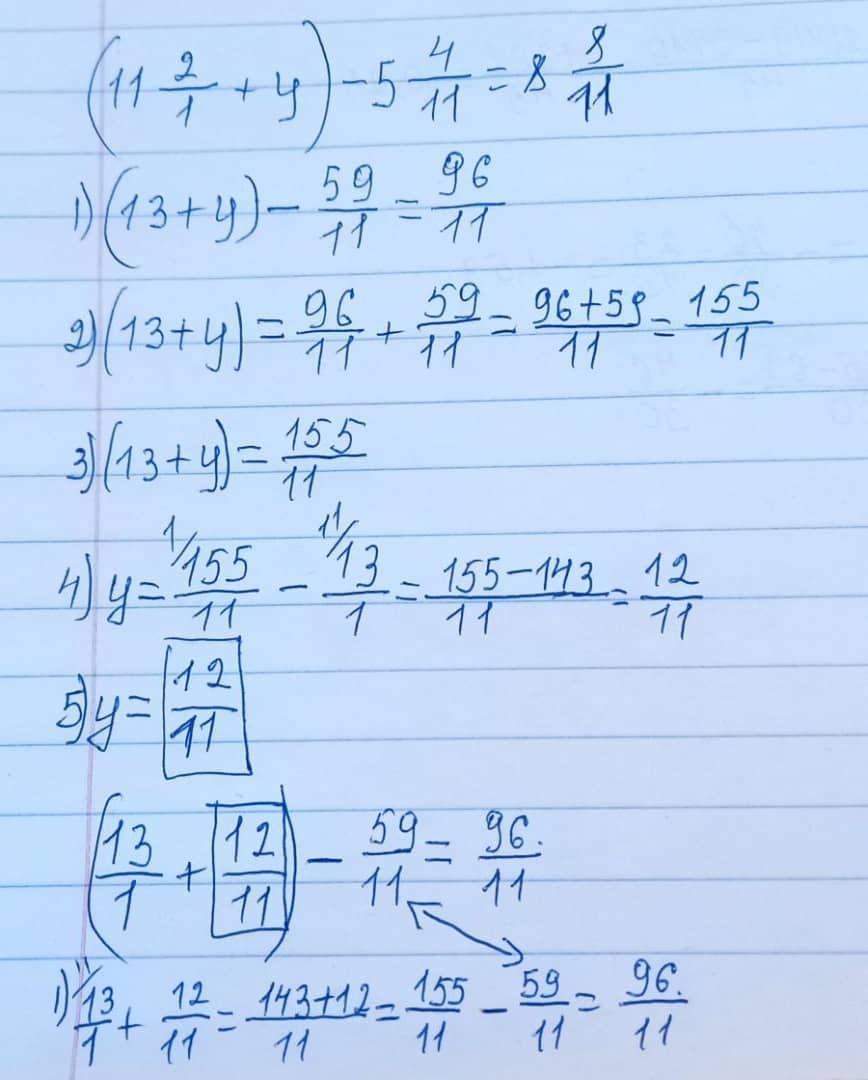 (11 2/1 + y) - 5 4/11 = 8 8/11
1) (13 + y) - 59/11 = 96/11
2) (13 + y) = 96/11 + 59/11 = 96+59/11 = 155/11
3) (13 + y) = 155/11
4) y = 1/ 155/11 - 11/ 13/1 = 155-143/11 = 12/11
5) y = 12/11
(13/1 + 12/11) - 59/11 = 96./11
1) 11/ 13/1 + 12/11 = 143+12/11 = 155/11 - 59/11 = 96./11